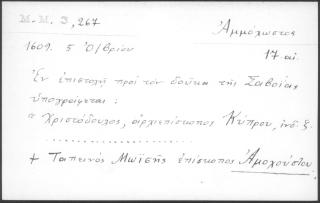 M.M. 3, 267
Ἀμμόχωστος
1609. 5 Ὀ/βρίου
17 αἰ.
Ἐν ἐπιστολῇ πρὸς τὸν δοῦκα τῆς Σαβοΐας
ὑπογράφεται:
" Χριστόδουλος, ἀρχιεπίσκοπος Κύπρου, ἰνδ. ξ.
....................
+ Ταπεινὸς Μωϊσῆς ἐπίσκοπος Ἀμοχούστου